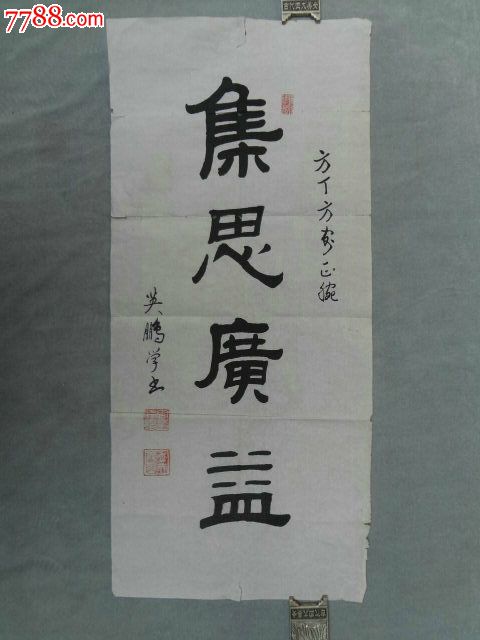 7788.com
集思廣益
方丁方
正腕
吳鵬学书